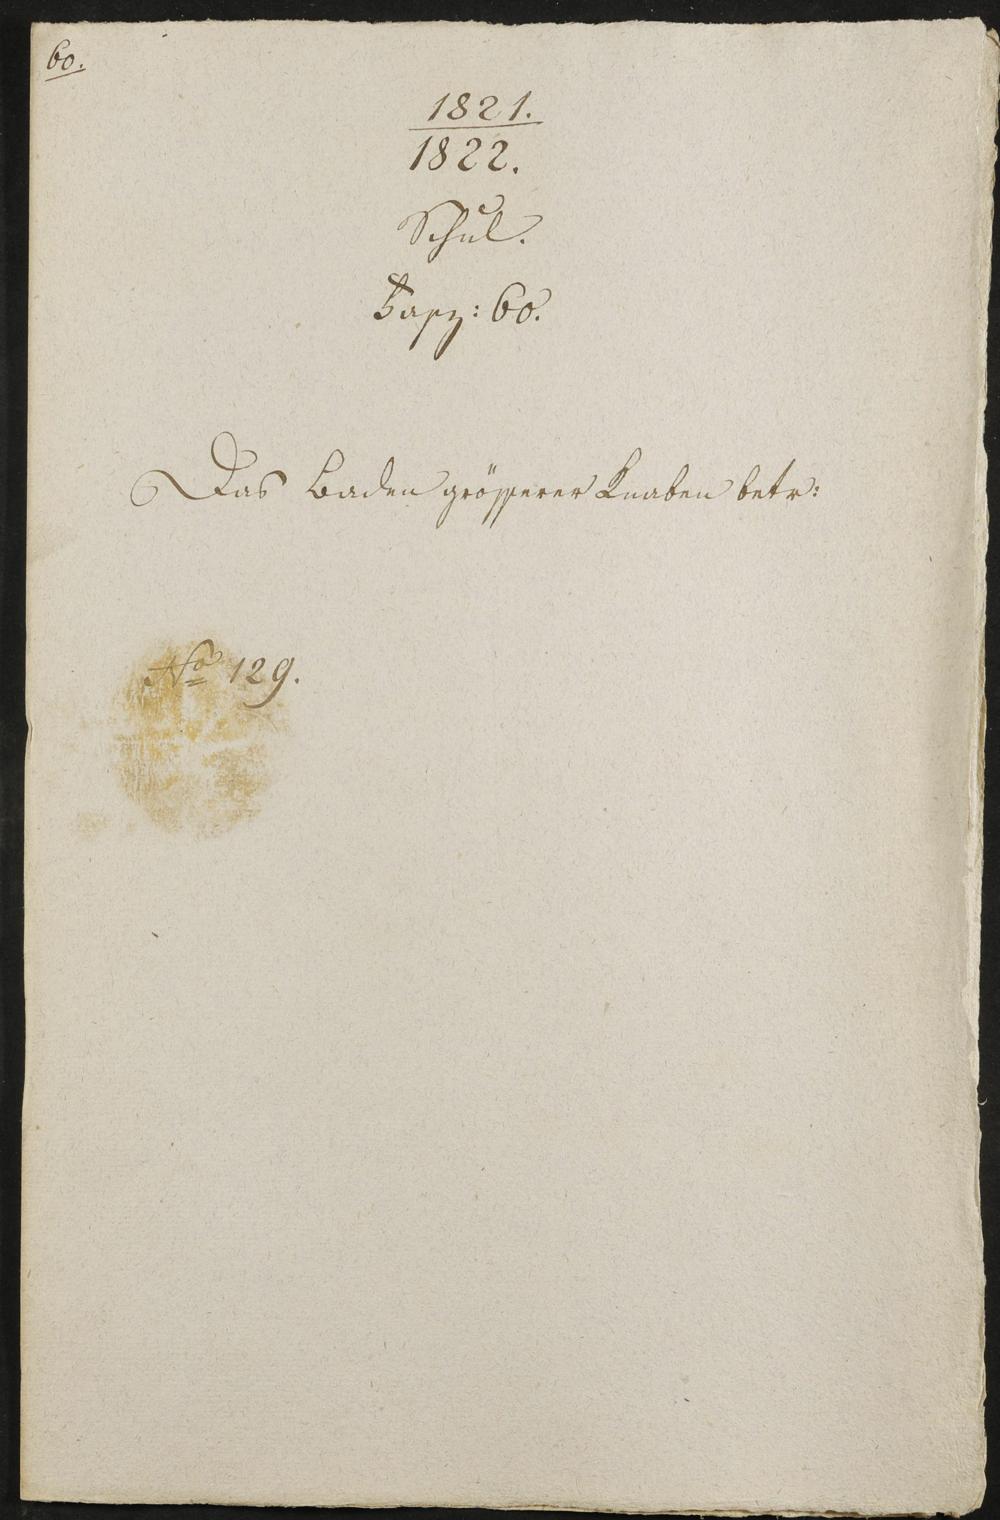 60.
1821.
1822.
Schul.
Fasz: 60.
Das Baden grösserer Knaben betr:
No 129.